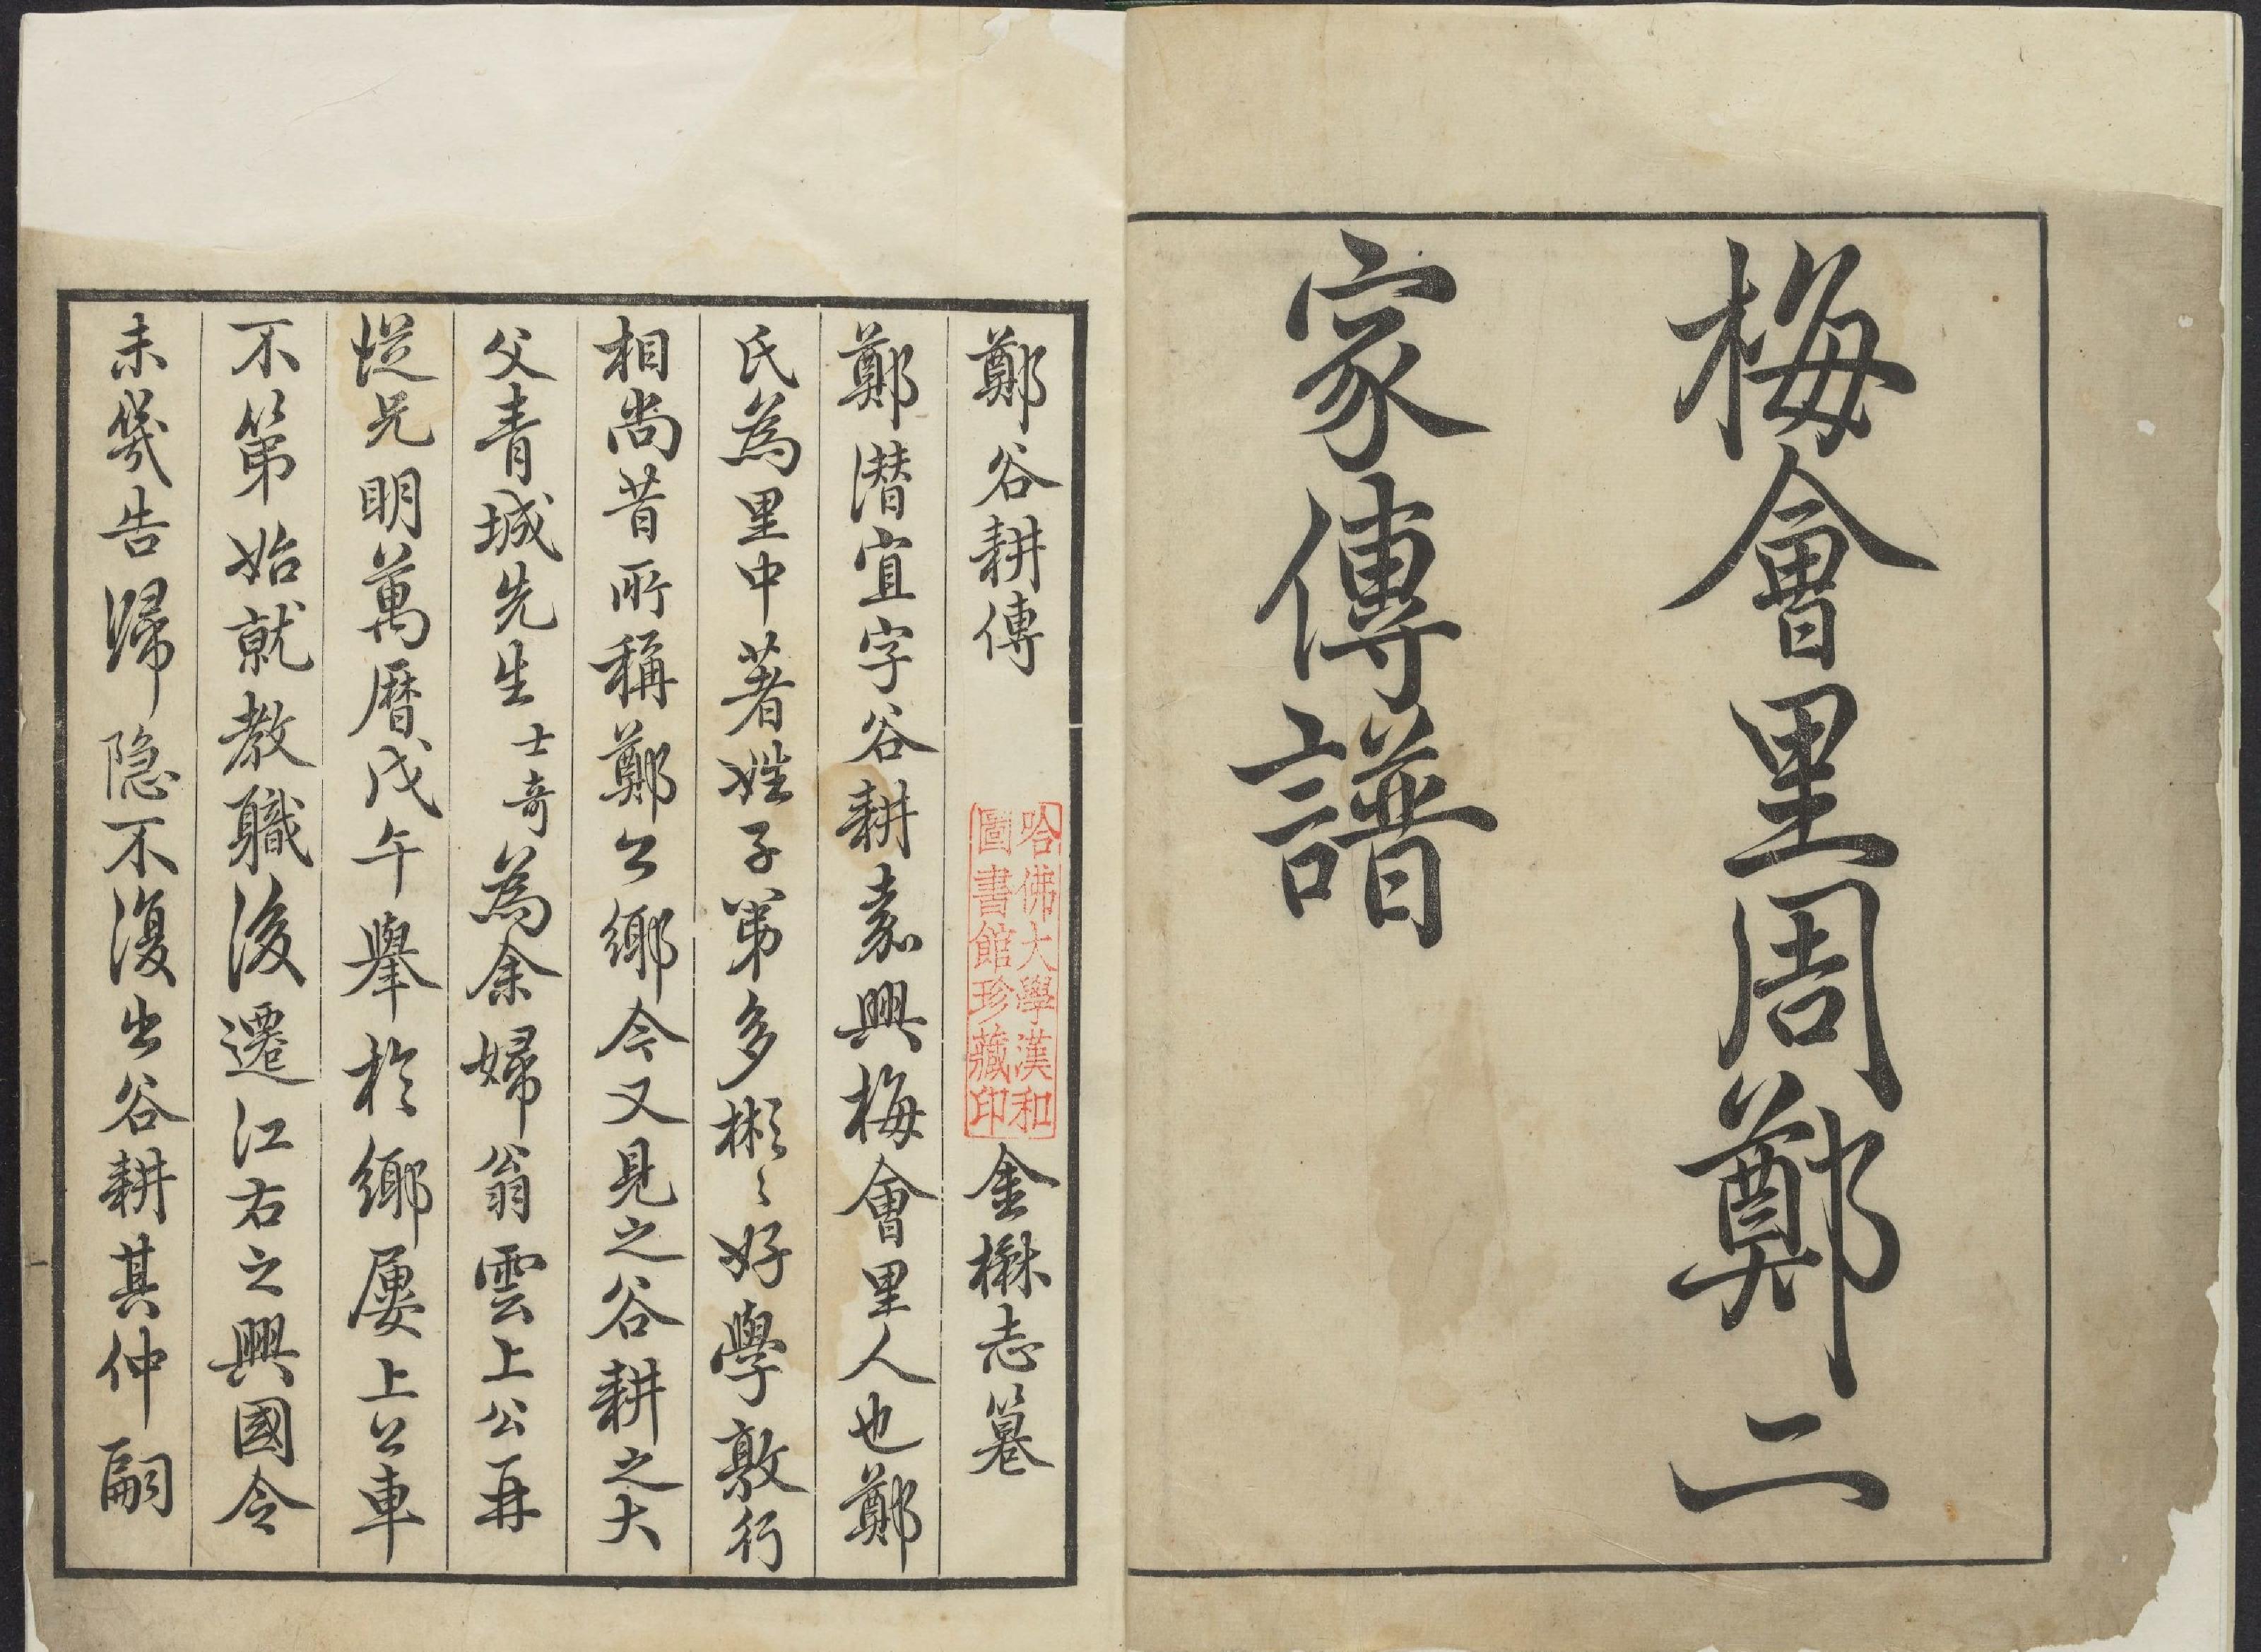 梅會里周鄭二
家傳譜
鄭谷耕傳
哈佛大學漢和
圖書館珍藏印
金楙志篹
鄭潛宜字谷耕嘉興梅會里人也鄭
氏為里中著姓子弟多彬〻好學敦行
相尚昔所稱鄭公鄉今又見之谷耕之大
父青城先生士奇為余婦翁雲上公再
從兄明萬曆戊午舉於鄉屢上公車
不第始就教職後遷江右之興國令
未幾告歸隐不復出谷耕其仲嗣